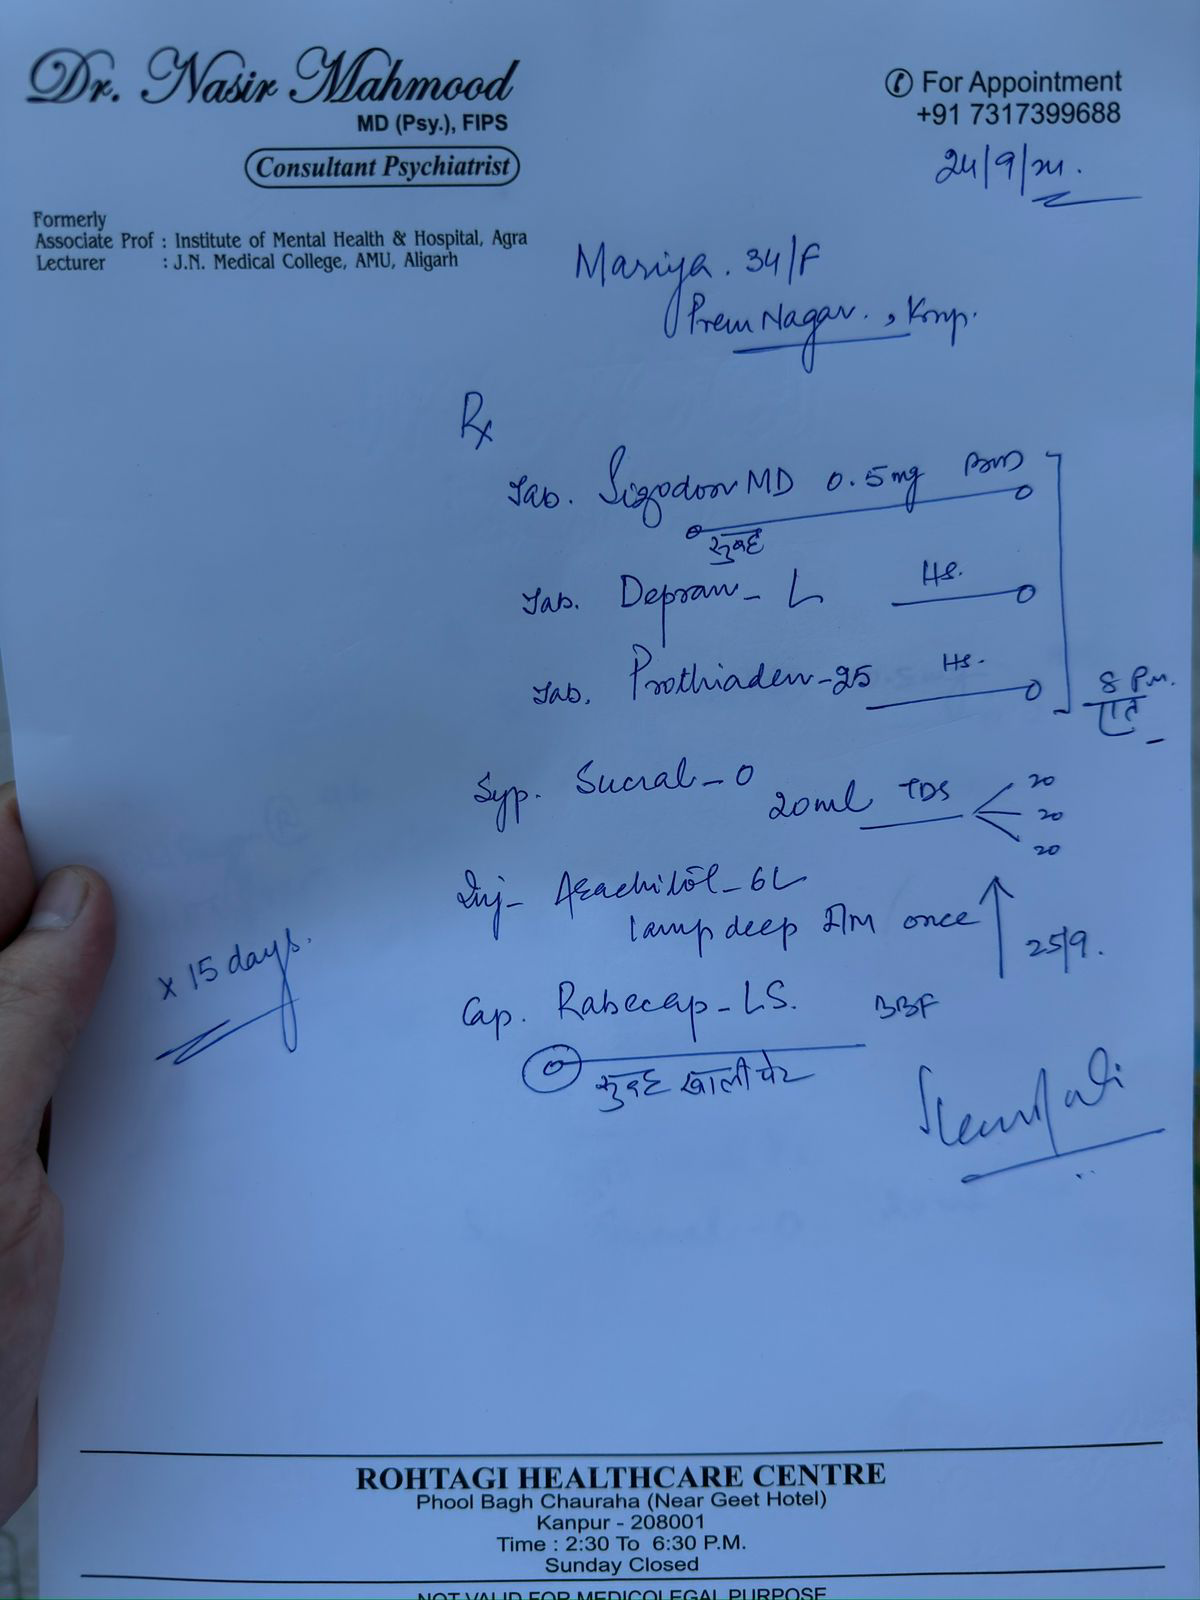 Dr. Nasir Mahmood
MD (Psy.), FIPS
Consultant Psychiatrist
Formerly
Associate Prof : Institute of Mental Health & Hospital, Agra
Lecturer : J.N. Medical College, AMU, Aligarh
For Appointment
+91 7317399688
24/9/
Mariya. 34/F
Prem Nagar., Knp.
Rx
Tab. MD 0.5mg
सुबह
Tab. L HS.
Tab. Prothiaden-25 HS.
8 P.M.
रात
Syp. Sucral-O 20ml TDS
20
20
20
Inj-
1amp deep I/M once
25/9.
x 15 days.
Cap. Rabecap-LS. BBF
सुबह खाली पेट
ROHTAGI HEALTHCARE CENTRE
Phool Bagh Chauraha (Near Geet Hotel)
Kanpur - 208001
Time : 2:30 To 6:30 P.M.
Sunday Closed
NOT VALID FOR MEDICOLEGAL PURPOSE